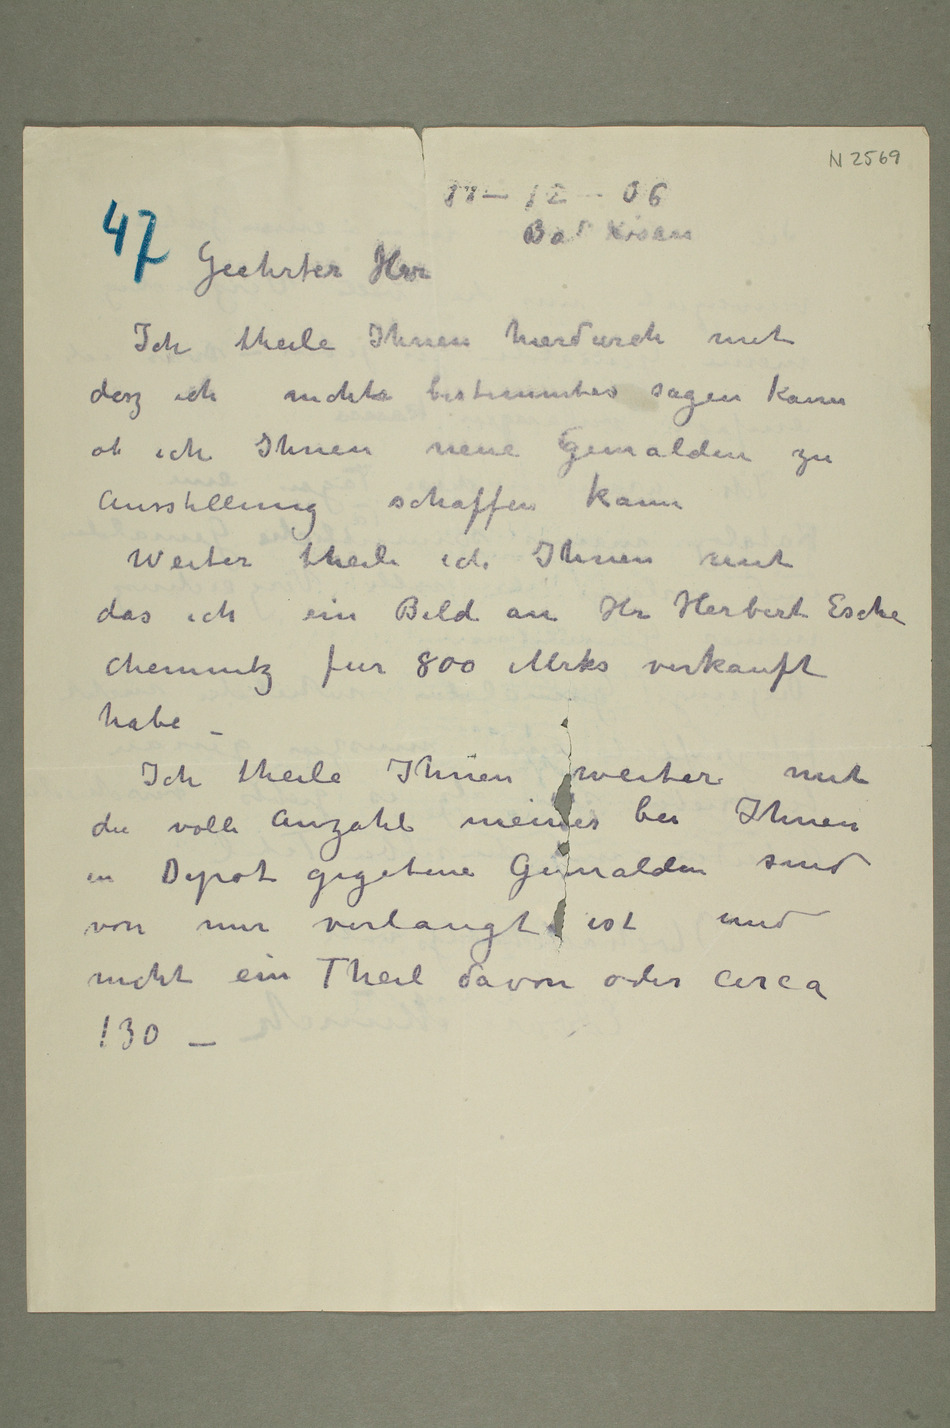 N 2569
– 12 – 06
Bad Kösen
47
Geehrter Herr
Ich theile Ihnen hierdurch mit
dasz ich nichts bestimmtes sagen kann
ob ich Ihnen neue Gemalden zu
Ausstellung schaffen kann
Weiter theile ich Ihnen mit
das ich ein Bild an Hr Herbert Esche
Chemnitz fur 800 Mrks verkauft
habe –
Ich theile Ihnen weiter mit
die volle Anzahl meines bei Ihnen
in Depot gegebene Gemalden sind
von mir verlangt ist und
nicht ein Theil davon oder circa
130 –